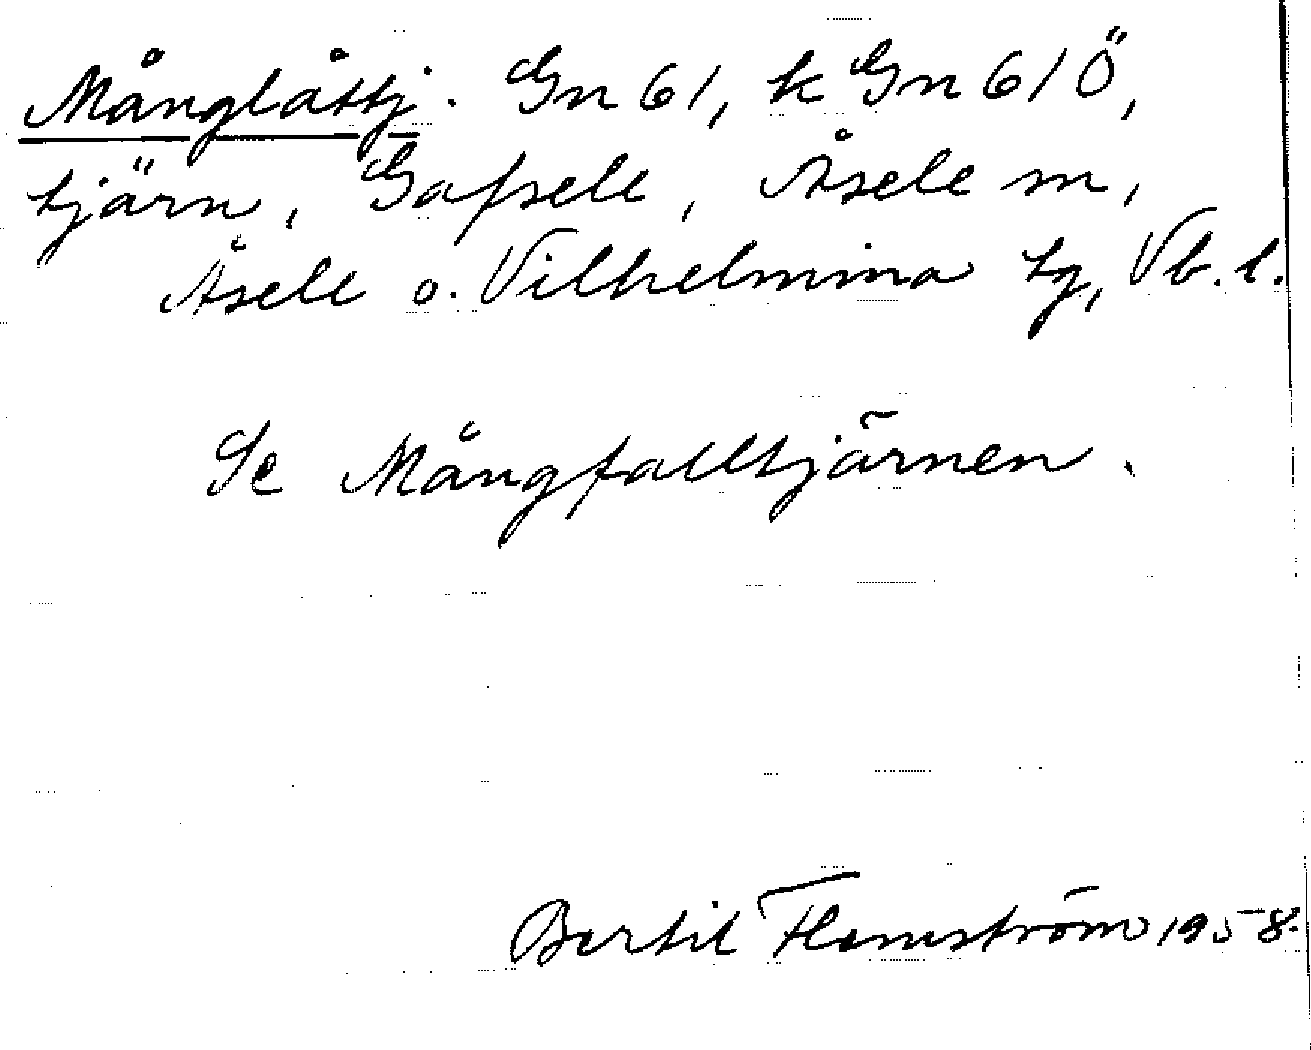 Månglåttj. Gn 61, k Gn 61 Ö,
tjärn, Gafsele, Åsele sn,
Åsele o. Vilhelmina tg, Vb. l.
Se Mångfalltjärnen.
Bertil Flemström 1958.